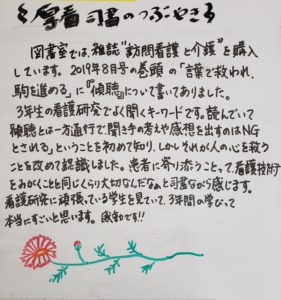 厚看司書のつぶやき
図書室では、雑誌"訪問看護と介護"を購入
しています。2019年8月号の巻頭の「言葉で救われ、
駒を進める」に『傾聴』について書いてありました。
3年生の看護研究でよく聞くキーワードです。読んでいて
傾聴とは一方通行で、聞き手の考えや感想を出すのはNG
とされる」ということを初めて知り、しかしそれが人の心を救う
ことを改めて認識しました。患者に寄り添うことって、看護技術
をみがくことと同じくらい大切なんだなぁと司書ながら感じます。
看護研究に頑張っている学生を見ていて、3年間の学びって
本当にすごいと思います。感動です!!